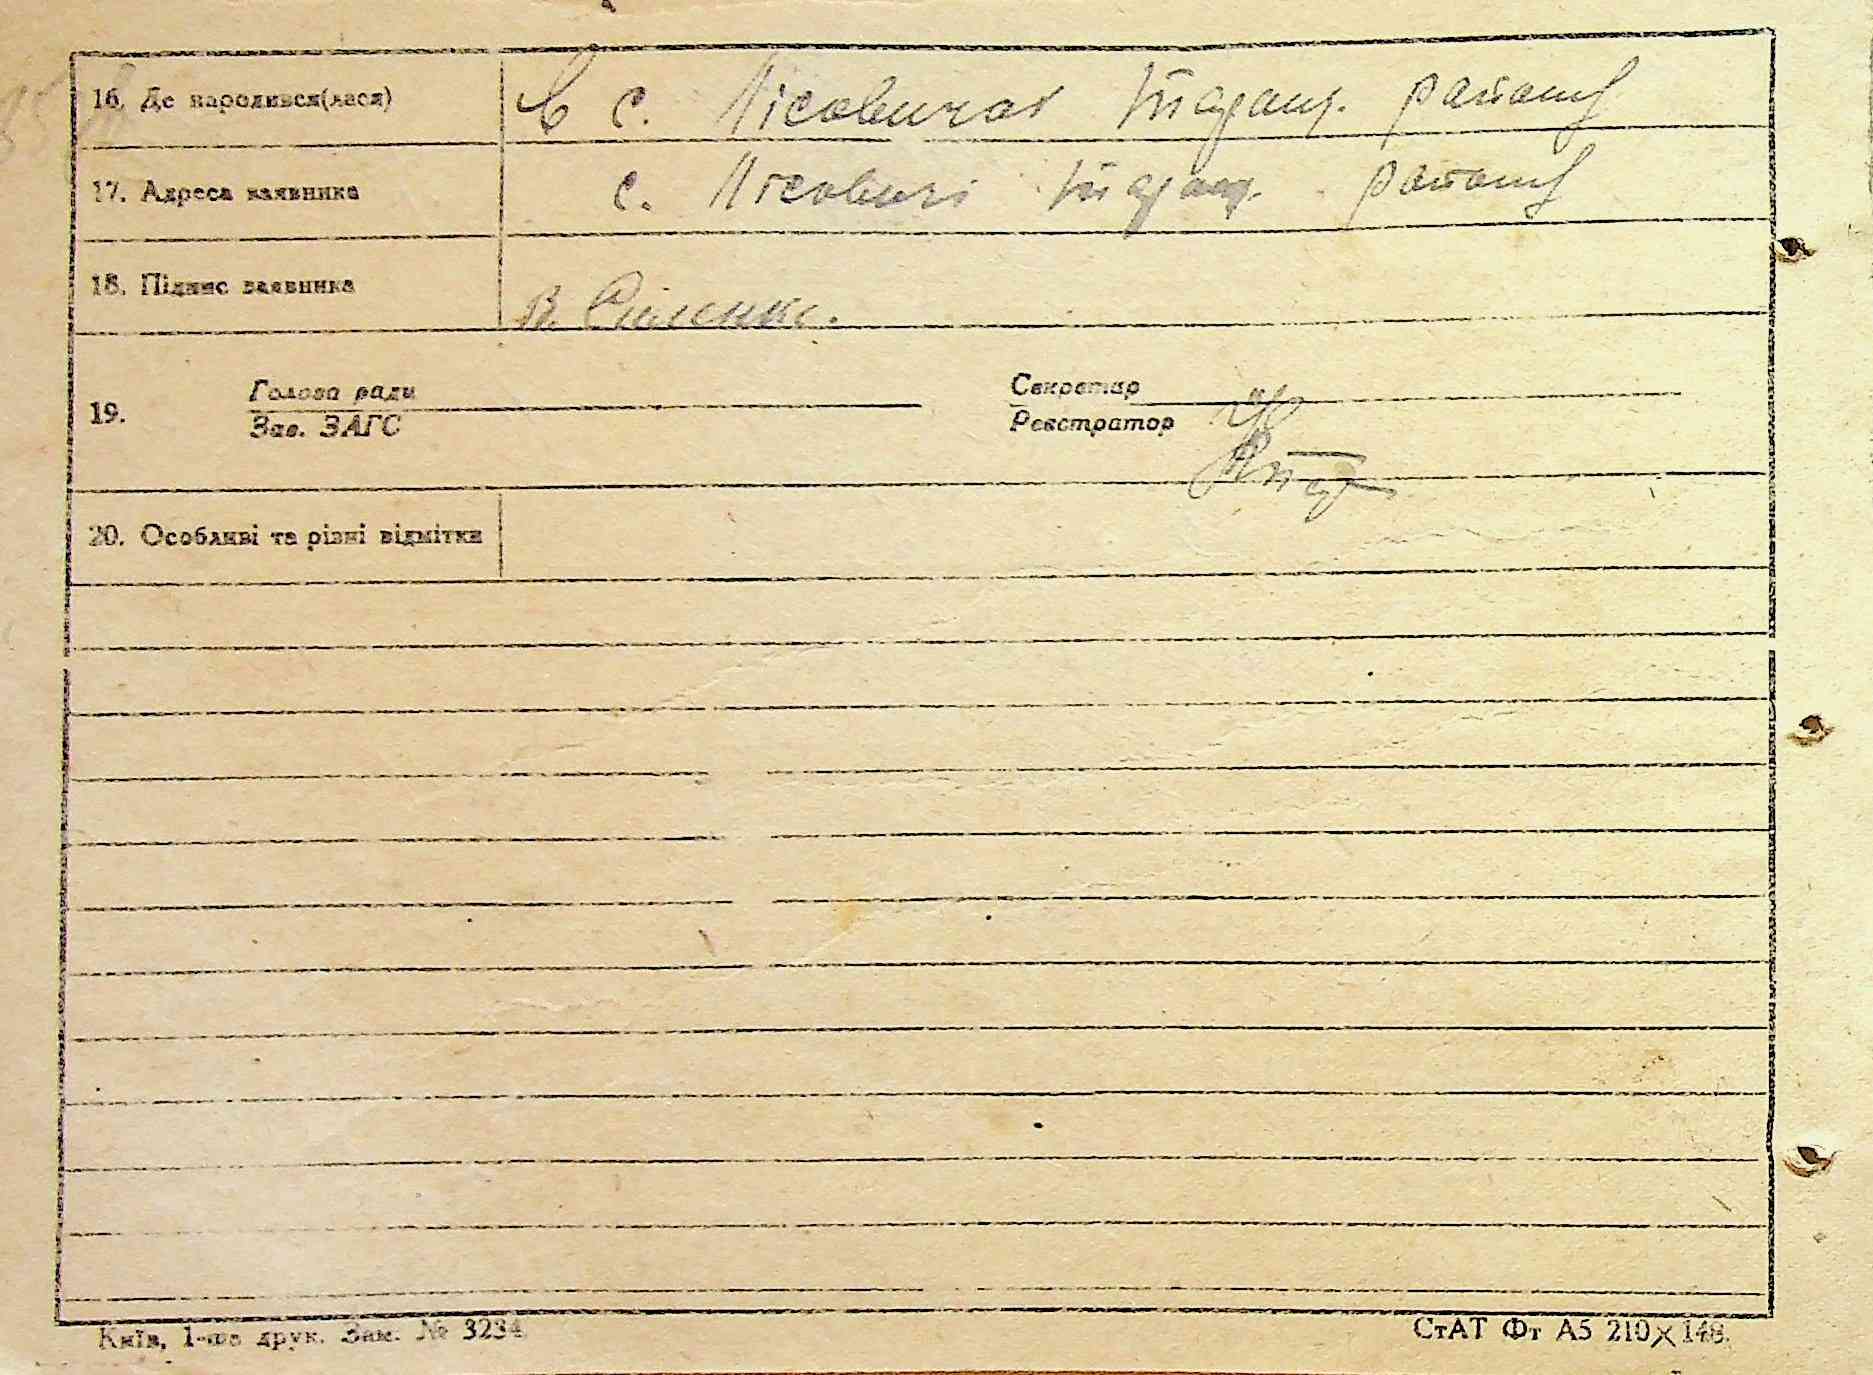 16. Де народився(лася) в с. Лісовичах районі
17. Адреса заявника с. Лісовичі районі
18. Підпис заявника В.
Голова ради Секретар
19.
Зав. ЗАГС Реєстратор
20. Особливі та різні відмітки
Київ, 1-ша друк. Зам. № 3234. СтАТ Фт А5 210×148.